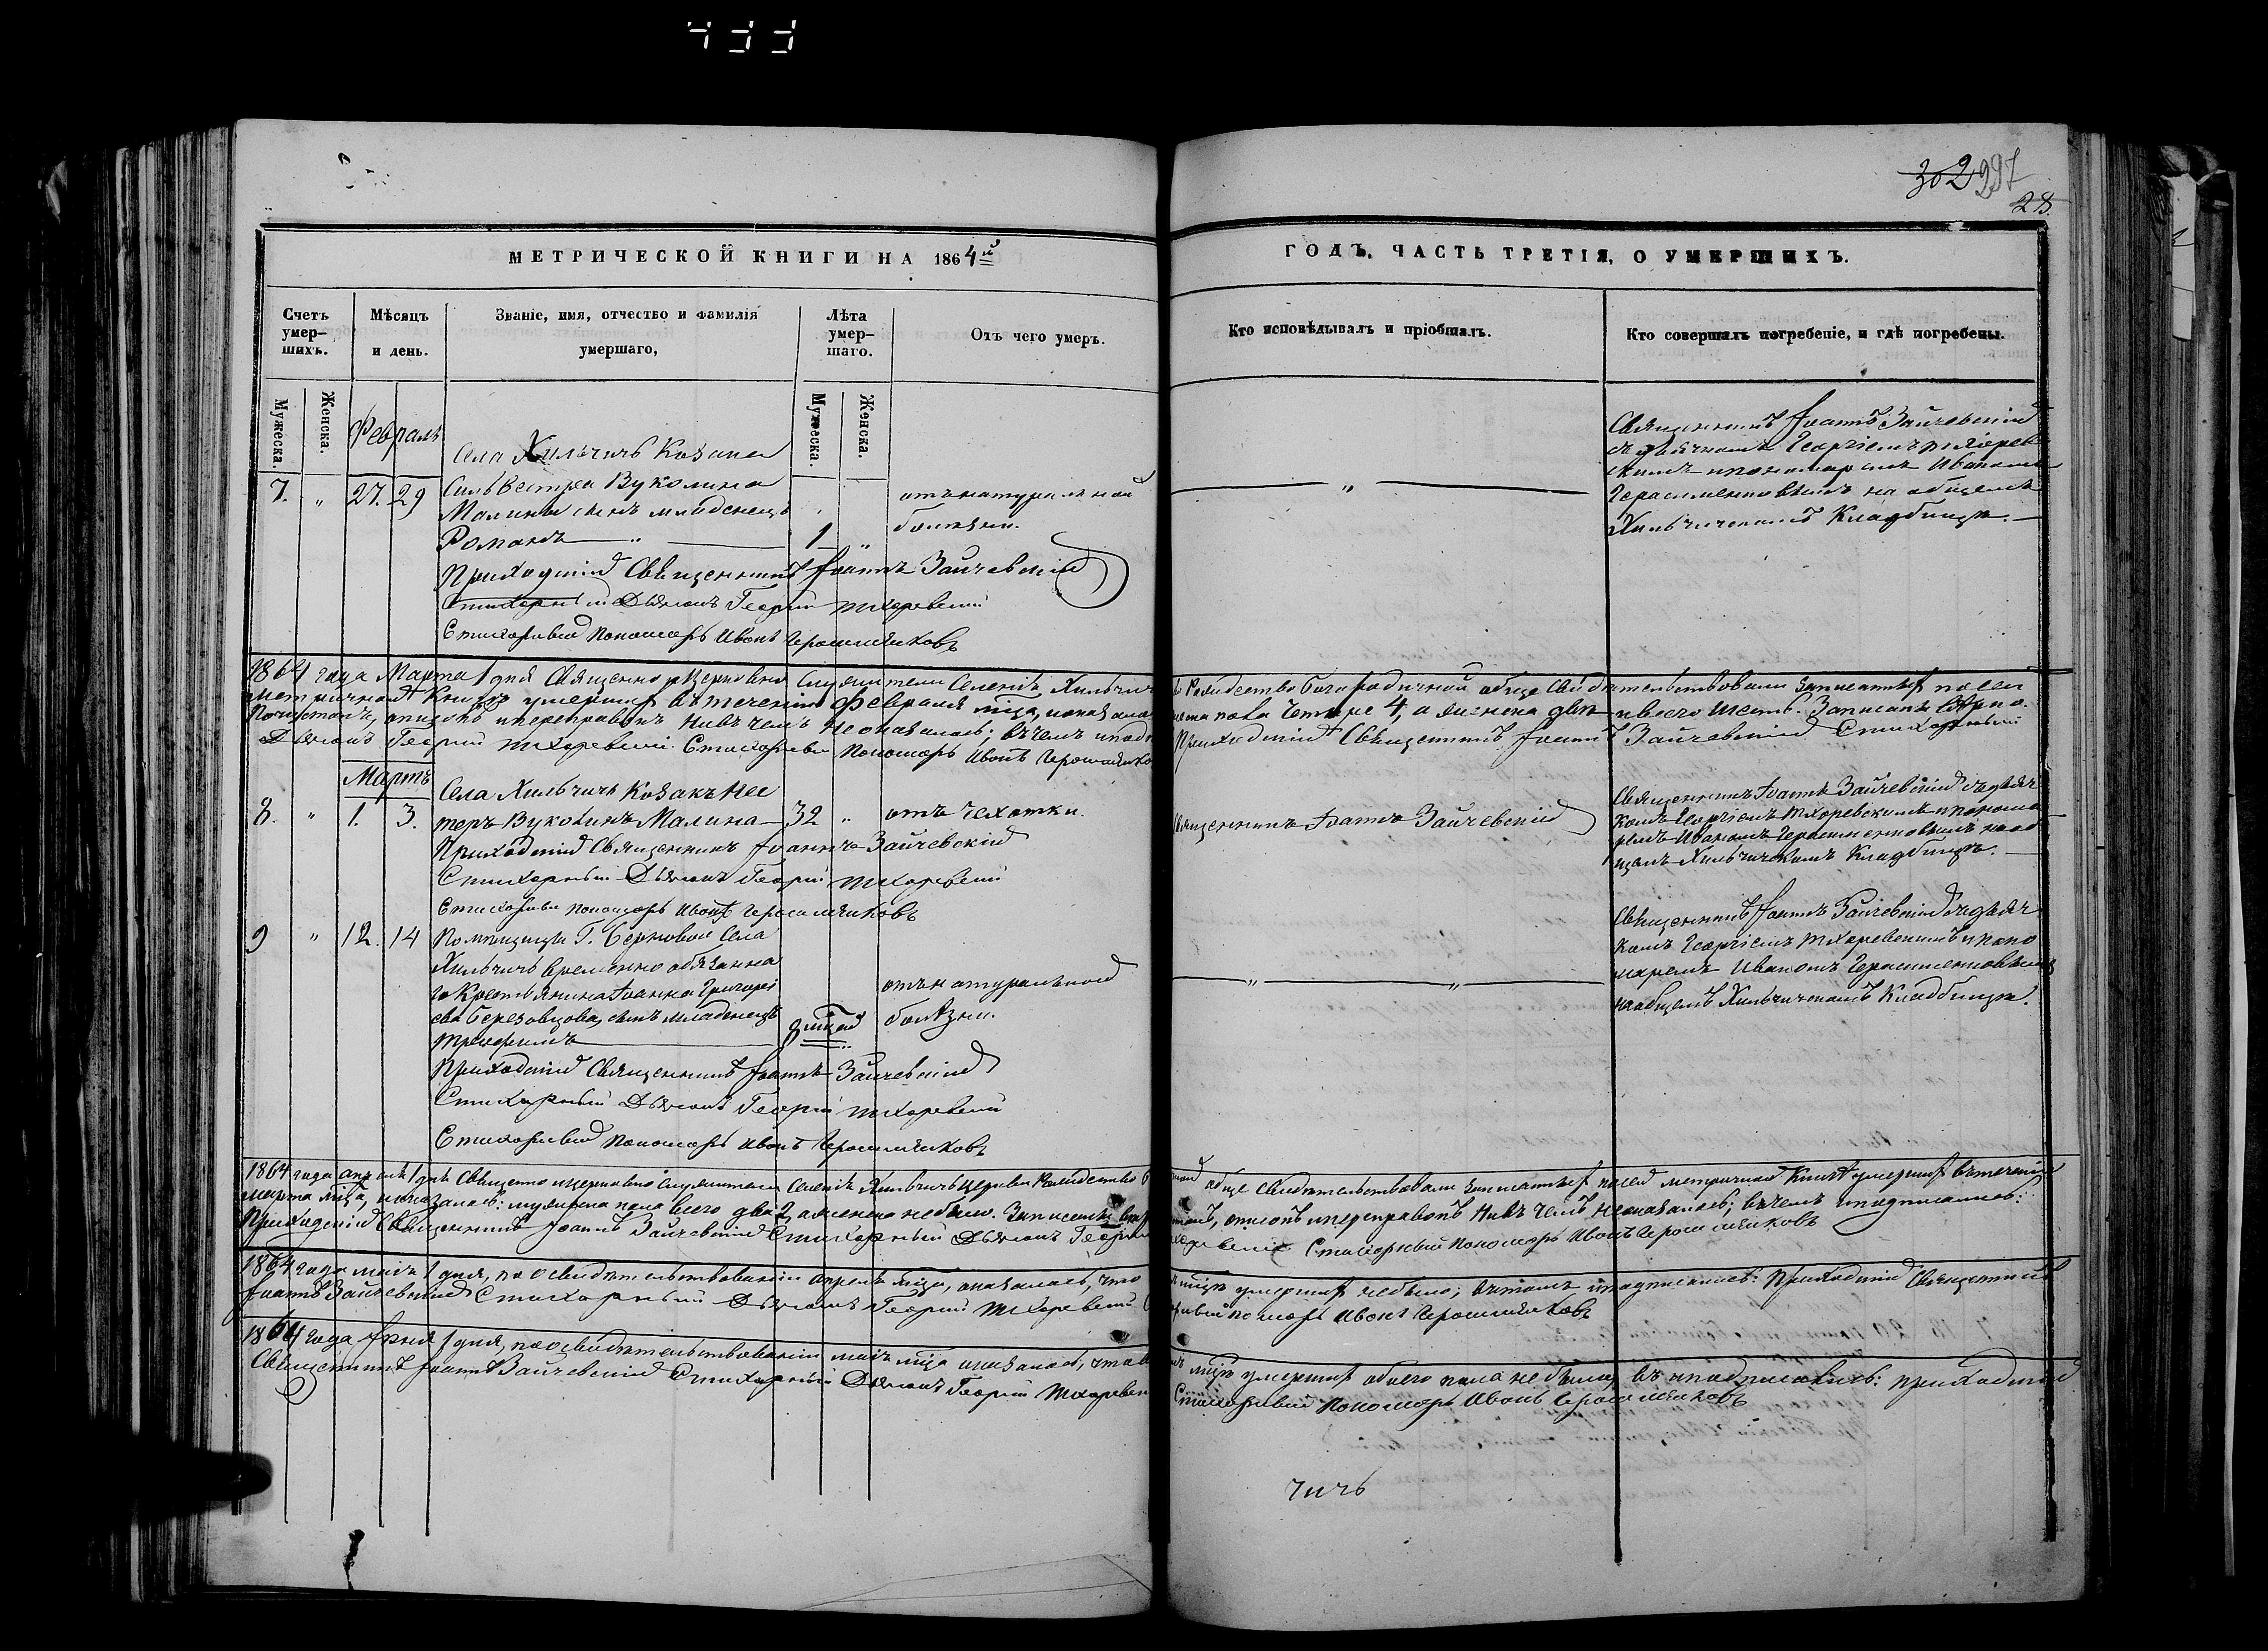 302 297
28.
МЕТРИЧЕСКОЙ КНИГИ НА 1864й
ГОДЪ, ЧАСТЬ ТРЕТІЯ, О УМЕРШИХЪ.
Счетъ умер-
шихъ.
Мѣсяцъ
и день.
Званіе, имя, отчество и фамилія
умершаго,
Лѣта
умер-
шаго.
Отъ чего умеръ.
Кто исповѣдывалъ и пріобщалъ.
Кто совершалъ погребеніе, и гдѣ погребены.
Мужеска.
Женска.
Мужеска.
Женска.
Февраль
7. „ 27. 29
Села Хильчичь Козака
Сильвестра Вуколина
Малины сынъ младенецъ
Романъ — „ — 1 „
отъ натуральной
болѣзни.
— „ —
Священникъ Іоаннъ Зайчевскій
съ дьячкомъ Георгіемъ Тхорев-
скимъ и пономаремъ Иваномъ
Герасименковымъ на общемъ
Хильчичскомъ Кладбищѣ. —
Приходскій Священникъ Іоаннъ Зайчевскій
Стихарный Дьячокъ Георгій Тхоревскій
Стихарный Пономарь Иванъ Герасименковъ
1864 года Марта 1 дня Священно и Церковно Служители Селенія Хильчичь
Рождество Богородичной обще Свидѣтельствовали записанныхъ по сей
метричной Книгѣ умершихъ въ теченіи Февраля мца, показалось
пола Четыре 4, а женска двѣ и всего шесть. Записанъ вѣрно.
Почистокъ, описокъ и переправокъ ни въ чемъ не оказалось; въ чемъ и
Приходскій Священникъ Іоаннъ Зайчевскій Стихарный
Дьячокъ Георгій Тхоревскій. Стихарный Пономарь Иванъ
Мартъ
8. „ 1. 3.
Села Хильчичь Козакъ Нес
теръ Вуколинъ Малина — 32 „
отъ чехотки.
Священникъ Іоаннъ Зайчевскій
Священникъ Іоаннъ Зайчевскій съ дьяч
комъ Георгіемъ Тхоревскимъ и понома
ремъ Иваномъ Герасименковымъ на об
щемъ Хильчичскомъ Кладбищѣ. —
Приходскій Священникъ Іоаннъ Зайчевскій
Стихарный Дьячокъ Георгій Тхоревскій
Стихарный Пономарь Иванъ Герасименковъ
9 „ 12. 14
Помѣщицы Г. Серковой Села
Хильчичь временно обязанна
го Крестьянина Іоанна Григорі
ева Березовцова, сынъ младенецъ
Трофимъ — 8 мцей „
отъ натуральной
болѣзни.
— „ — „ —
Священникъ Іоаннъ Зайчевскій съ дьяч
комъ Георгіемъ Тхоревскимъ и поно
маремъ Иваномъ Герасименковымъ
на общемъ Хильчичскомъ Кладбищѣ.
Приходскій Священникъ Іоаннъ Зайчевскій
Стихарный Дьячокъ Георгій Тхоревскій
Стихарный Пономарь Иванъ Герасименковъ
1864 года апрѣля 1 дня Священно и церковно служители Селенія Хильчичь Церкви Рождество
обще свидѣтельствовали записанныхъ по сей метричной Книгѣ умершихъ въ теченіи
марта мца, показалось: мужеска пола всего два 2, а женска не было.
описокъ и переправокъ ни въ чемъ не оказалось; въ чемъ и подписались:
Приходскій Священникъ Іоаннъ Зайчевскій Стихарный Дьячокъ Георгій
Стихарный Пономарь Иванъ Герасименковъ
1864 года маія 1 дня, по освидѣтельствованіи апрѣля мца, оказалось, что
мцѣ умершихъ не было; въ томъ и подписались: Приходскій Священникъ
Іоаннъ Зайчевскій Стихарный Дьячокъ Георгій Тхоревскій
Пономарь Иванъ Герасименковъ
1864 года Іюня 1 дня, по освидѣтельствованіи маія мца оказалось, что в
мцѣ умершихъ обоего пола не было, въ подписались: приходскій
Священникъ Іоаннъ Зайчевскій Стихарный Дьячокъ Георгій Тхоревскій
Стихарный Пономарь Иванъ Герасименковъ
чичь